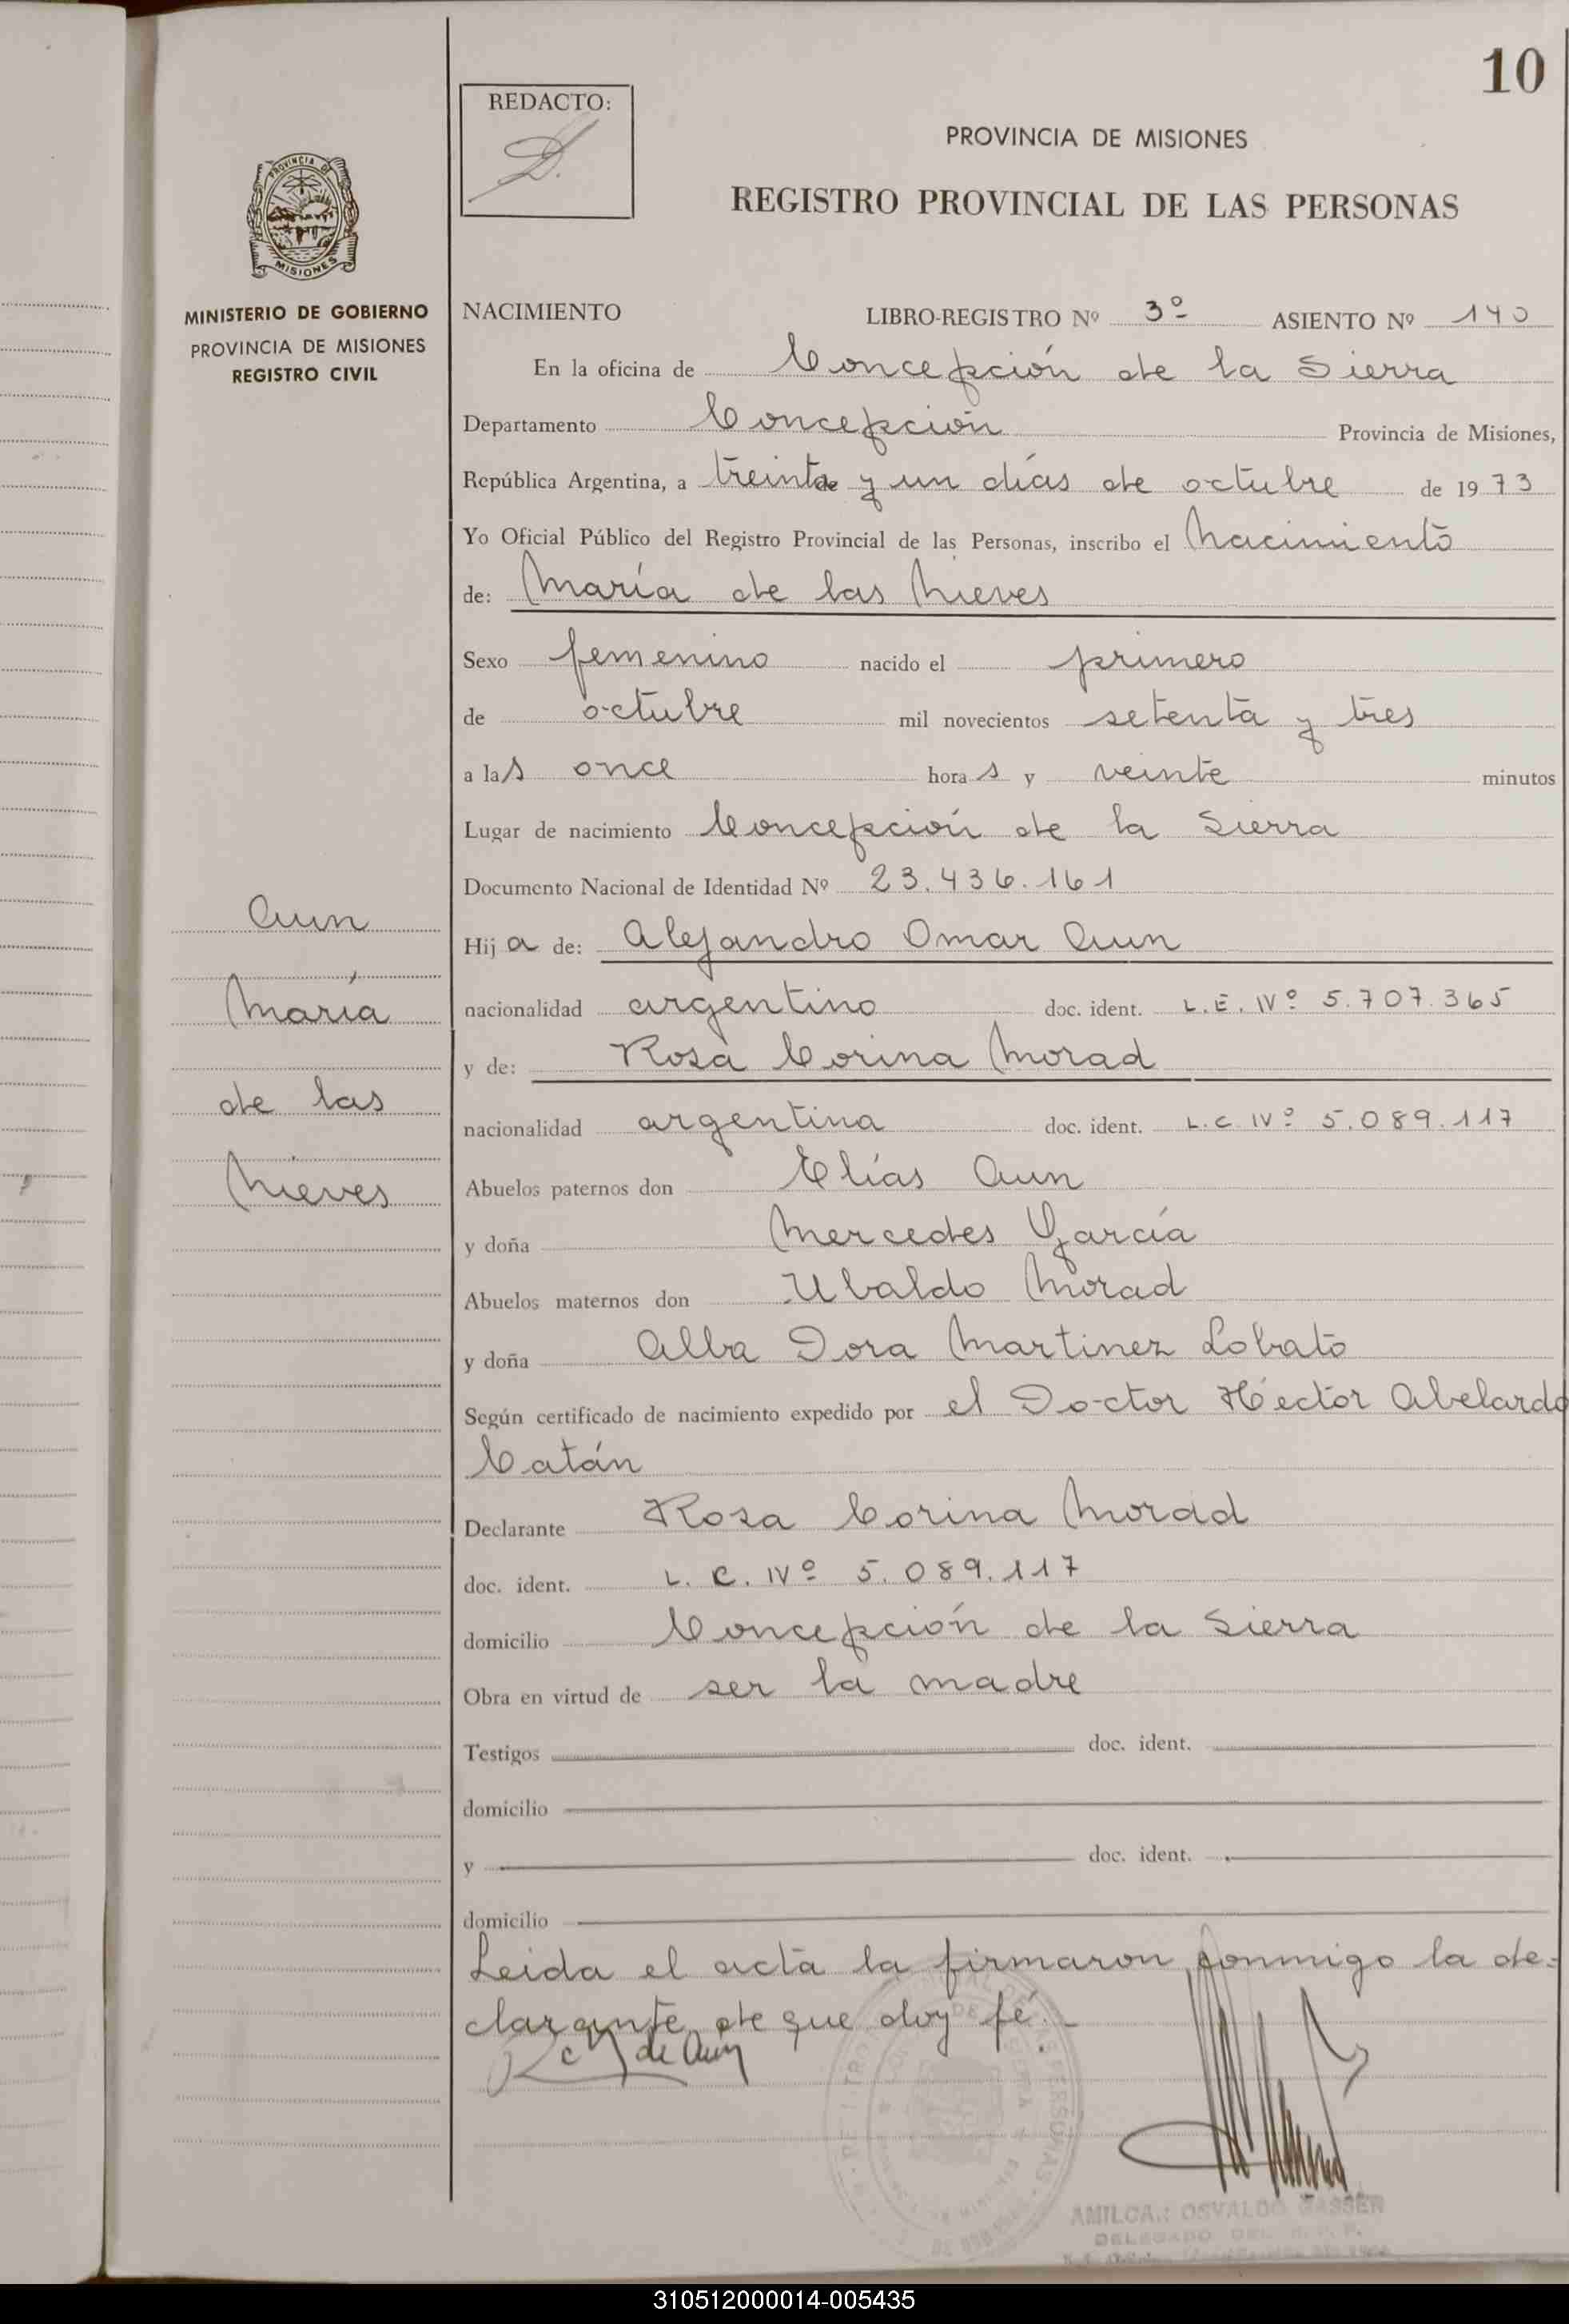 10
REDACTO:
PROVINCIA DE MISIONES
REGISTRO PROVINCIAL DE LAS PERSONAS
PROVINCIA DE
MISIONES
MINISTERIO DE GOBIERNO
PROVINCIA DE MISIONES
REGISTRO CIVIL
NACIMIENTO LIBRO-REGISTRO Nº 3º ASIENTO Nº 140
En la oficina de Concepción de la Sierra
Departamento Concepción Provincia de Misiones,
República Argentina, a treinta y un días de octubre de 1973
Yo Oficial Público del Registro Provincial de las Personas, inscribo el Nacimiento
de: María de las Nieves
Sexo femenino nacido el primero
de octubre mil novecientos setenta y tres
a las once horas y veinte minutos
Lugar de nacimiento Concepción de la Sierra
Documento Nacional de Identidad Nº 23.436.161
Aun
María
de las
Nieves
Hija de: Alejandro Omar Aun
nacionalidad argentino doc. ident. L.E. Nº 5.707.365
y de: Rosa Corina Morad
nacionalidad argentina doc. ident. L.C. Nº 5.089.117
Abuelos paternos don Elías Aun
y doña Mercedes García
Abuelos maternos don Ubaldo Morad
y doña Alba Dora Martinez Lobato
Según certificado de nacimiento expedido por el Doctor Héctor Abelardo
Catán
Declarante Rosa Corina Morad
doc. ident. L.C. Nº 5.089.117
domicilio Concepción de la Sierra
Obra en virtud de ser la madre
Testigos doc. ident.
domicilio
y doc. ident.
domicilio
Leida el acta la firmaron conmigo la de-
clarante de que doy fé.
de Aun
AMILCAR OSVALDO GASSEN
DELEGADO DEL R.P.P.
310512000014-005435